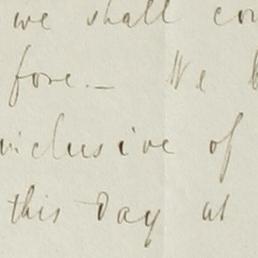 we shall
fore.— We
inclusive of
this Day at